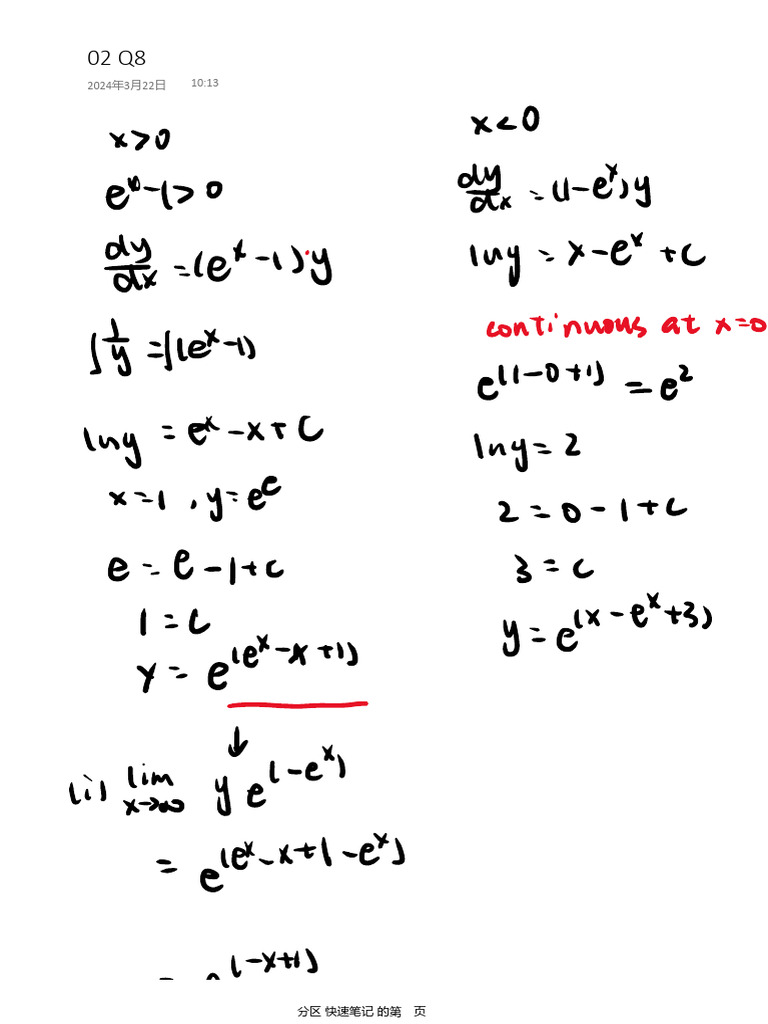 02 Q8
2024年3月22日 10:13
x>0
e^x-1>0
dy/dx=(e^x-1)·y
∫1/y=∫(e^x-1)
lny=e^x-x+C
x=1, y=e^e
e=e-1+c
1=c
y=e^(e^x-x+1)
↓
(i) lim x→∞ y e^(-e^x)
=e^(e^x-x+1-e^x)
=e^(-x+1)
x<0
dy/dx=(1-e^x)y
lny=x-e^x+c
continuous at x=0
e^(1-0+1)=e^2
lny=2
2=0-1+c
3=c
y=e^(x-e^x+3)
分区 快速笔记 的第 页